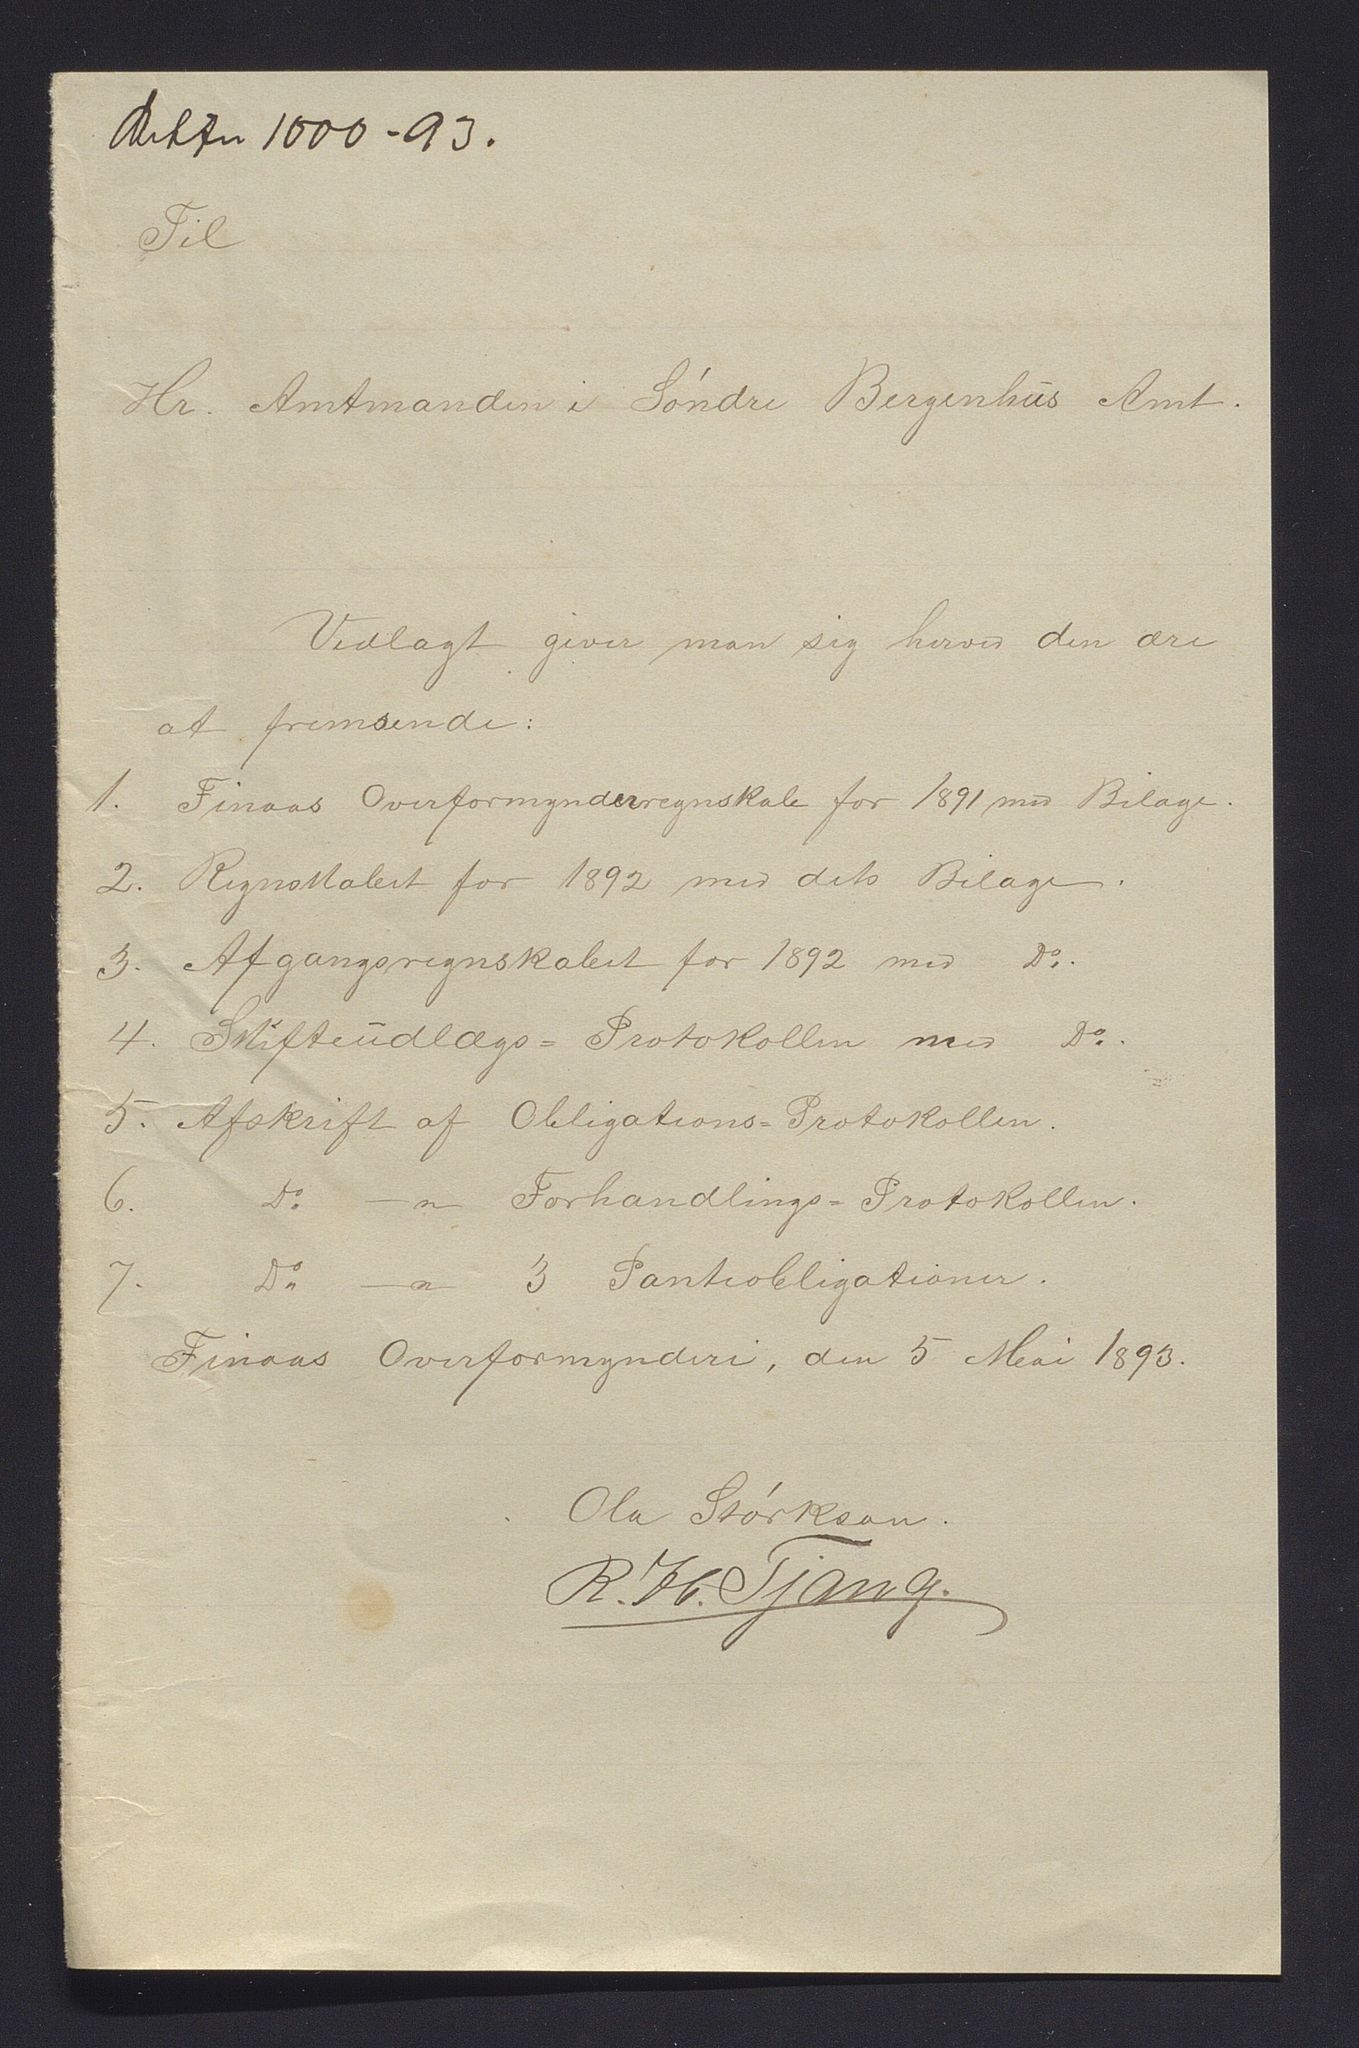 1000-93.
Til
Hr. Amtmanden i Söndre Bergenhus Amt.
Vedlagt giver man sig herved den ære
at fremsende:
1. Finaas Overformynderregnskab for 1891 med Bilage.
2. Regnskabet for 1892 med dets Bilage.
3. Afgangsregnskabet for 1892 med Do.
4. Skifteudlægs=Protokollen med Do.
5. Afskrift af Obligations=Protokollen.
6. Do. —"— Forhandlings=Protokollen.
7. Do. —"— 3 Panteobligationer.
Finaas Overformynderi, den 5 Mai 1893.
Ola Störkson.
R. H. Tjang.